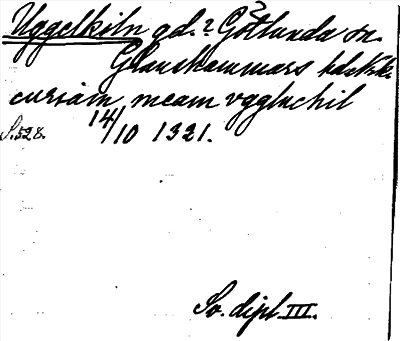 Uggelköln gd.? Götlunda sn.
Glanshammars hd
curiam meam vggluchil
S. 528. 14/10 1321.
Sv. dipl III.